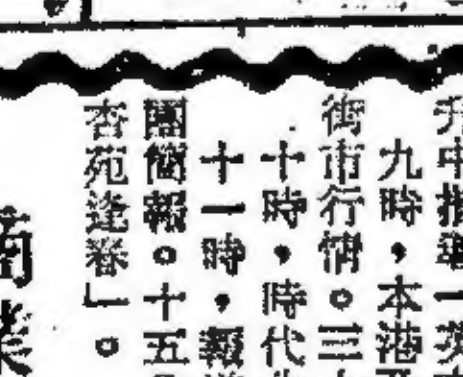 升中指導一英
九時，本港
街市行情。三
十時，時代
十一時，報
團簡報。十五
杏苑逢春」。